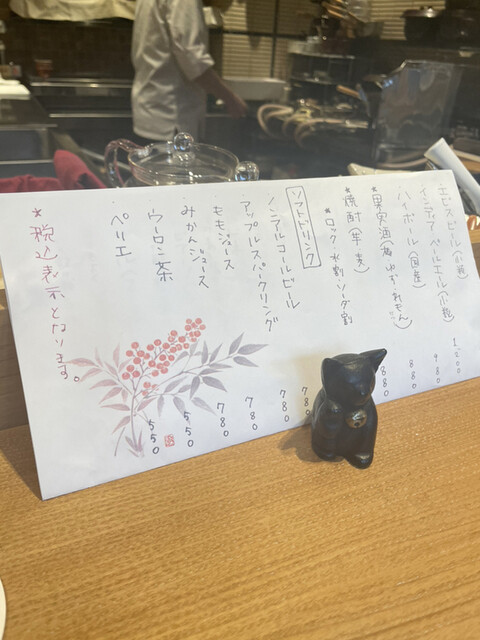 エビスビール(小瓶)
インディアペールエール(小瓶) 980
ハイボール(国産) 880
*果実酒(梅・ゆず・れもん) 880
*焼酎(芋・麦)
*ロック・水割・ソーダ割
ソフトドリンク
ノンアルコールビール 780
アップルスパークリング 780
ももジュース 780
みかんジュース 780
ウーロン茶 550
ペリエ 550
*税込表示となります。